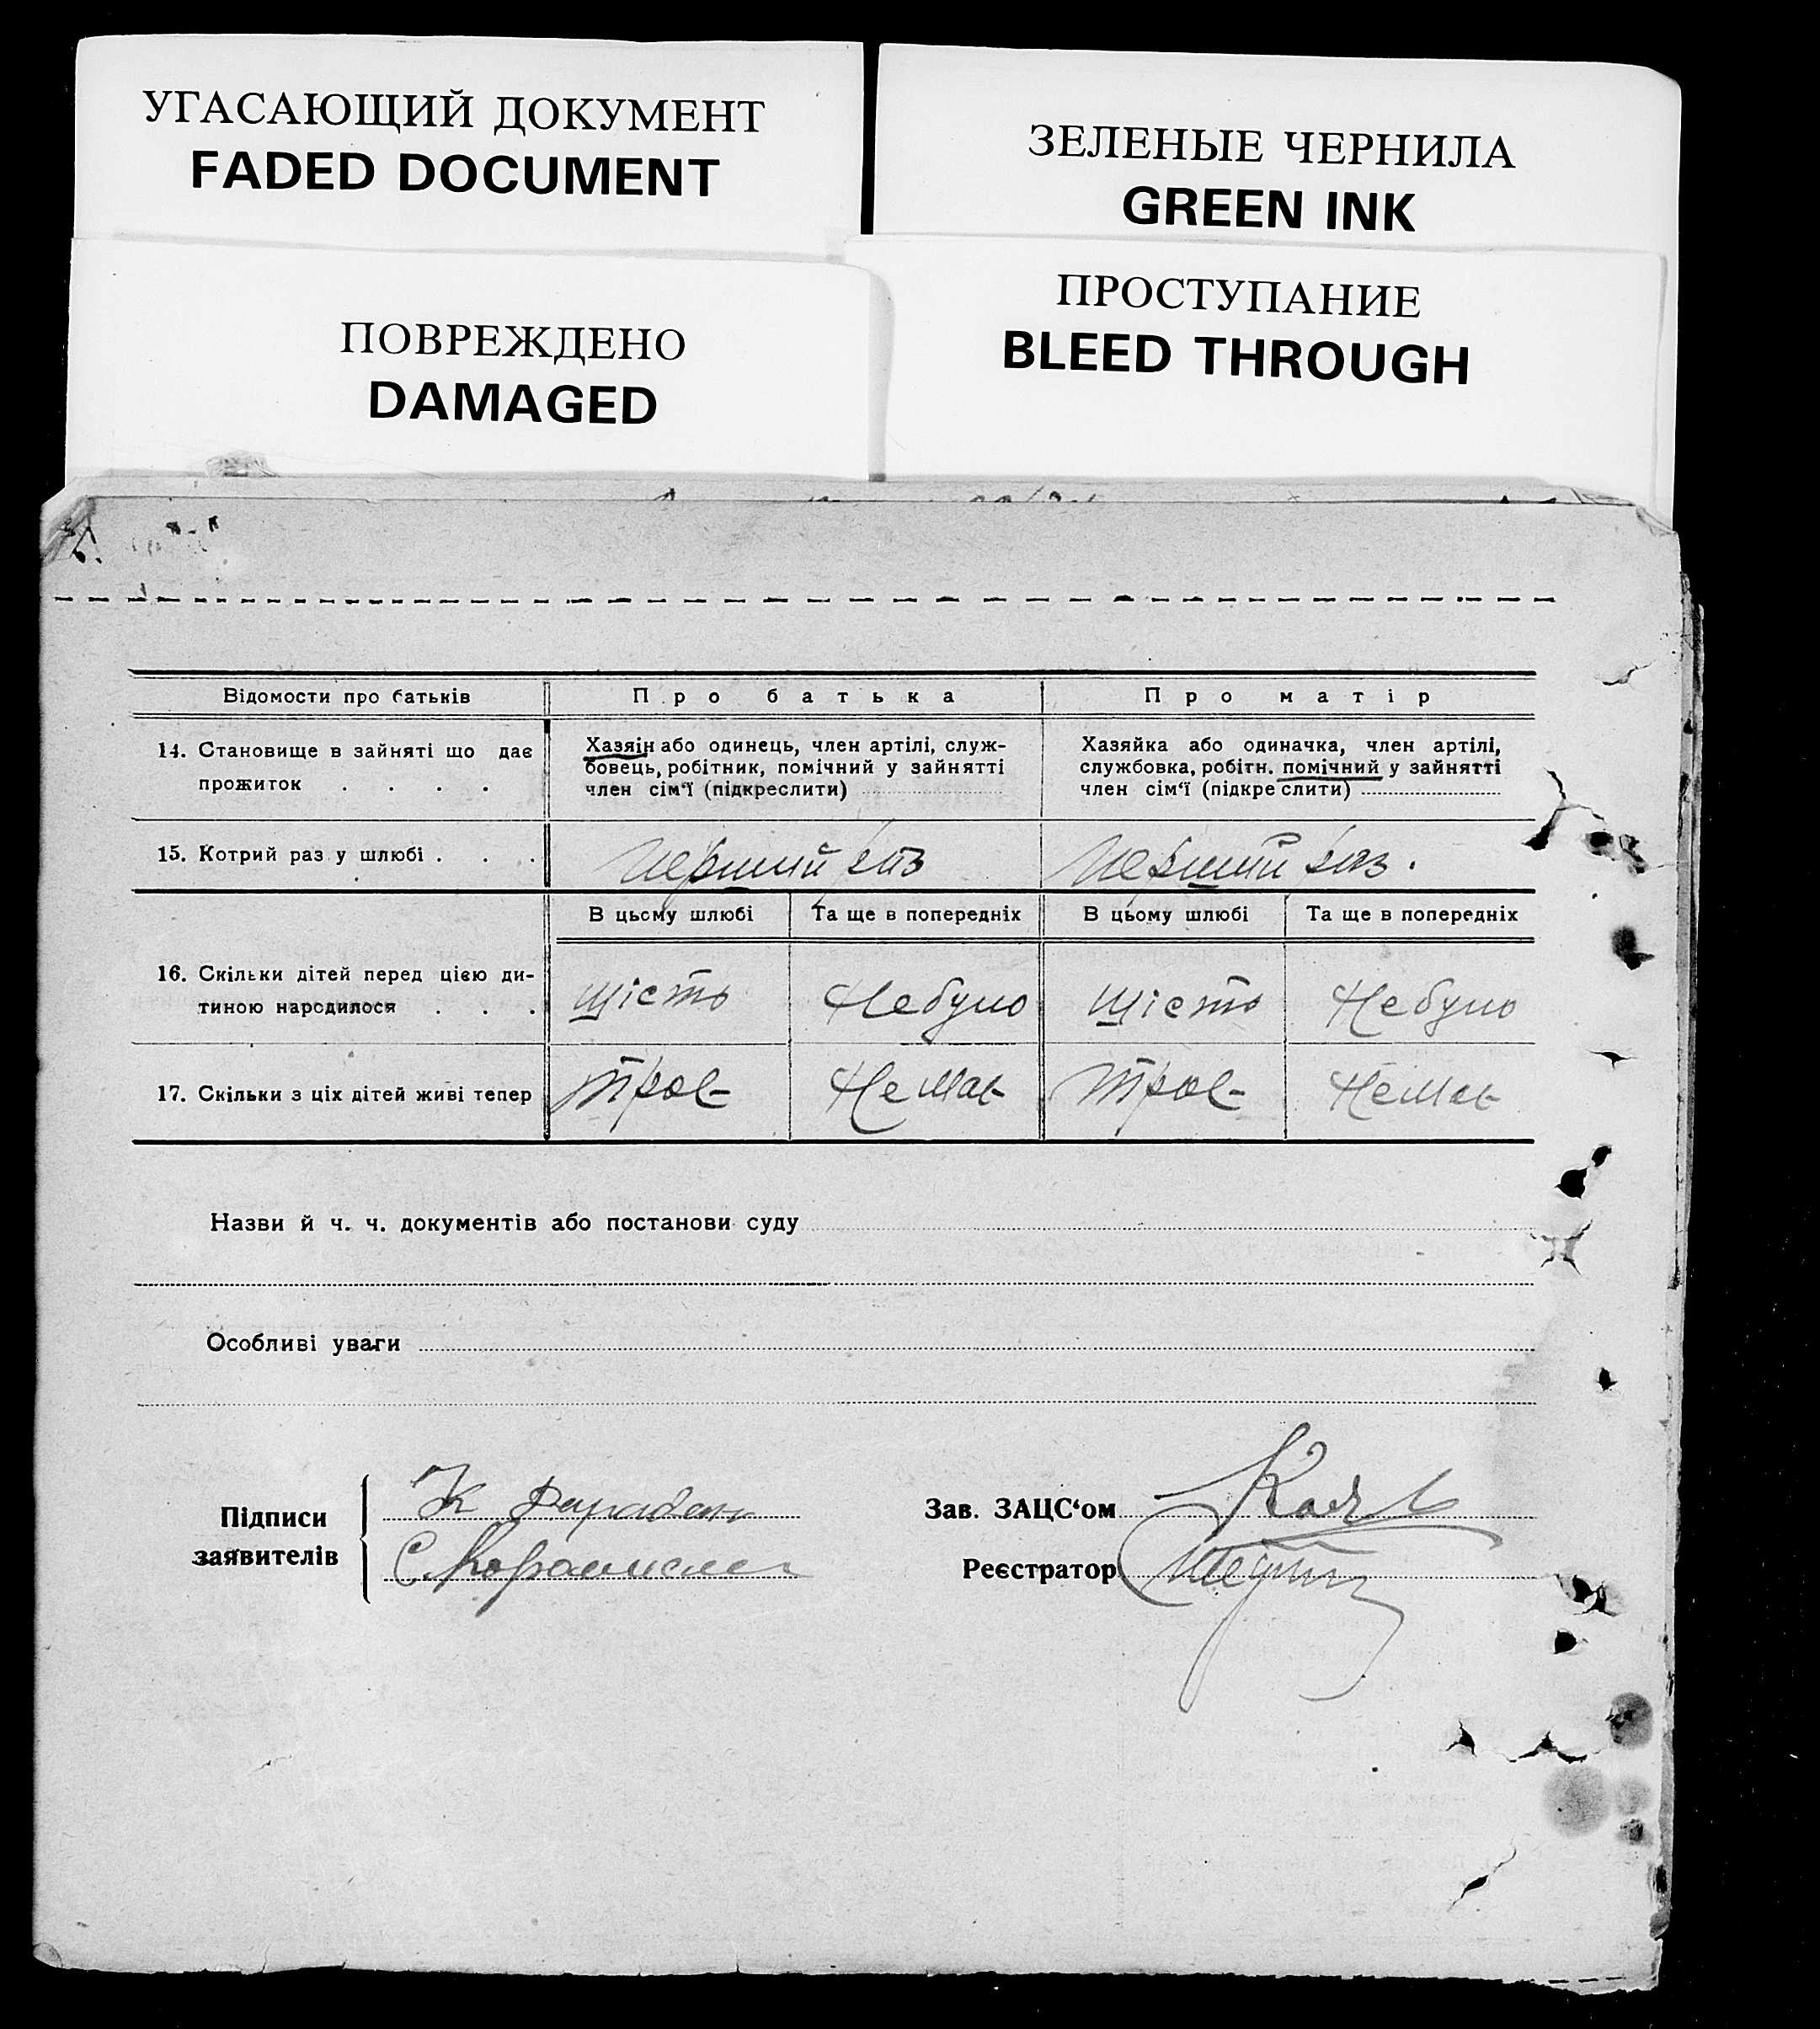 УГАСАЮЩИЙ ДОКУМЕНТ
FADED DOCUMENT
ЗЕЛЕНЫЕ ЧЕРНИЛА
GREEN INK
ПОВРЕЖДЕНО
DAMAGED
ПРОСТУПАНИЕ
BLEED THROUGH
Відомости про батьків
Про батька
Про матір
14. Становище в зайняті що дає
прожиток . . . .
Хазяїн або одинець, член артілі, служ-
бовець, робітник, помічний у зайнятті
член сім'ї (підкреслити)
Хазяйка або одиначка, член артілі,
службовка, робітн. помічний у зайнятті
член сім'ї (підкреслити)
15. Котрий раз у шлюбі . . .
перший раз
перший раз.
В цьому шлюбі
Та ще в попередніх
В цьому шлюбі
Та ще в попередніх
16. Скільки дітей перед цією ди-
тиною народилося . . .
шість
Небуло
шість
Небуло
17. Скільки з ціх дітей живі тепер
троє
Немає
троє
Немає
Назви й ч. ч. документів або постанови суду
Особливі уваги
Підписи
заявителів
К
С
Зав. ЗАЦС'ом
Реєстратор